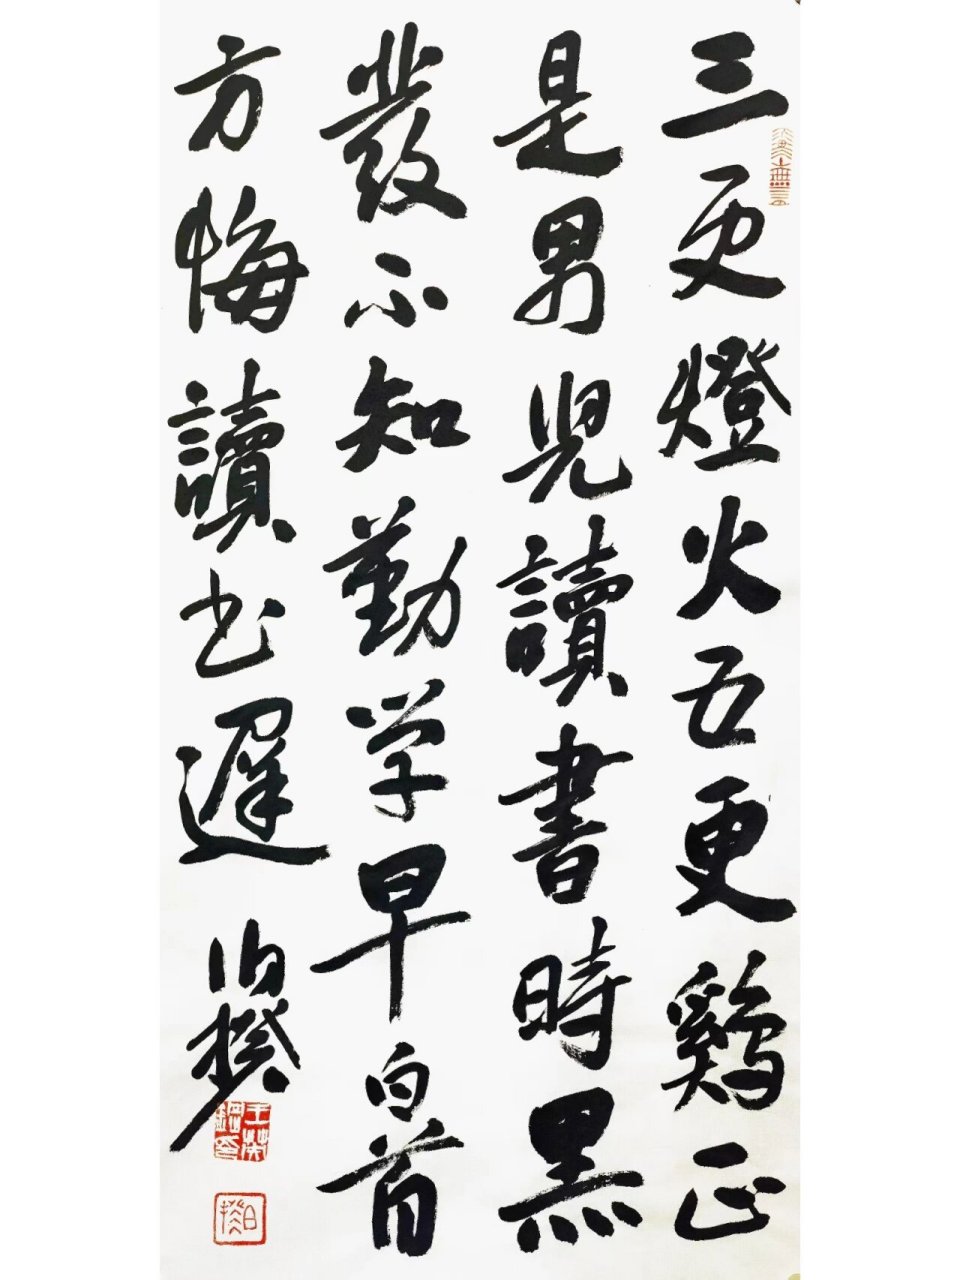 三更燈火五更鷄正
是男兒讀書時黑
發不知勤学早白首
方悔讀书遲
白揆